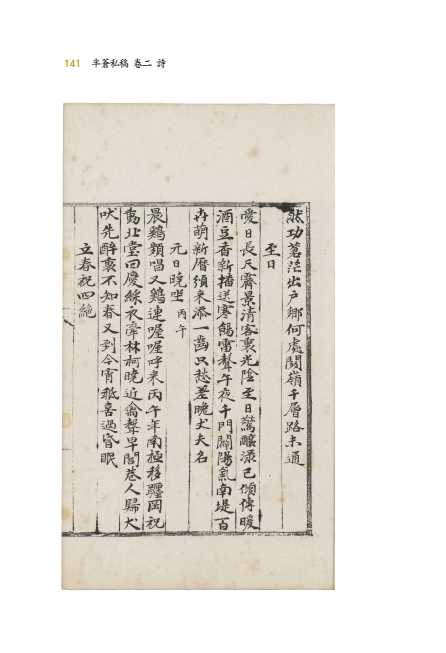 141 半蒼私稿 卷二 詩
然功茗茫出戶鄉何處關嶺千層路未通
至日
愛日長天霽景清客裏光陰至日驚釀漾已傾傳暖
酒豆香新擣送寒餳雷聲午夜千門闢陽氣南堤百
卉萌新曆頒來添一齒只愁差晚丈夫名
元日曉唑 丙午
晨鷄類唱又鷄連喔喔呼來丙午年南極移躔岡祝
壽北堂回慶綵衣牽林柯曉近禽聲早閭巷人歸犬
吠先醉裏不知春又到今宵祗喜過昏眠
立春祝四絶